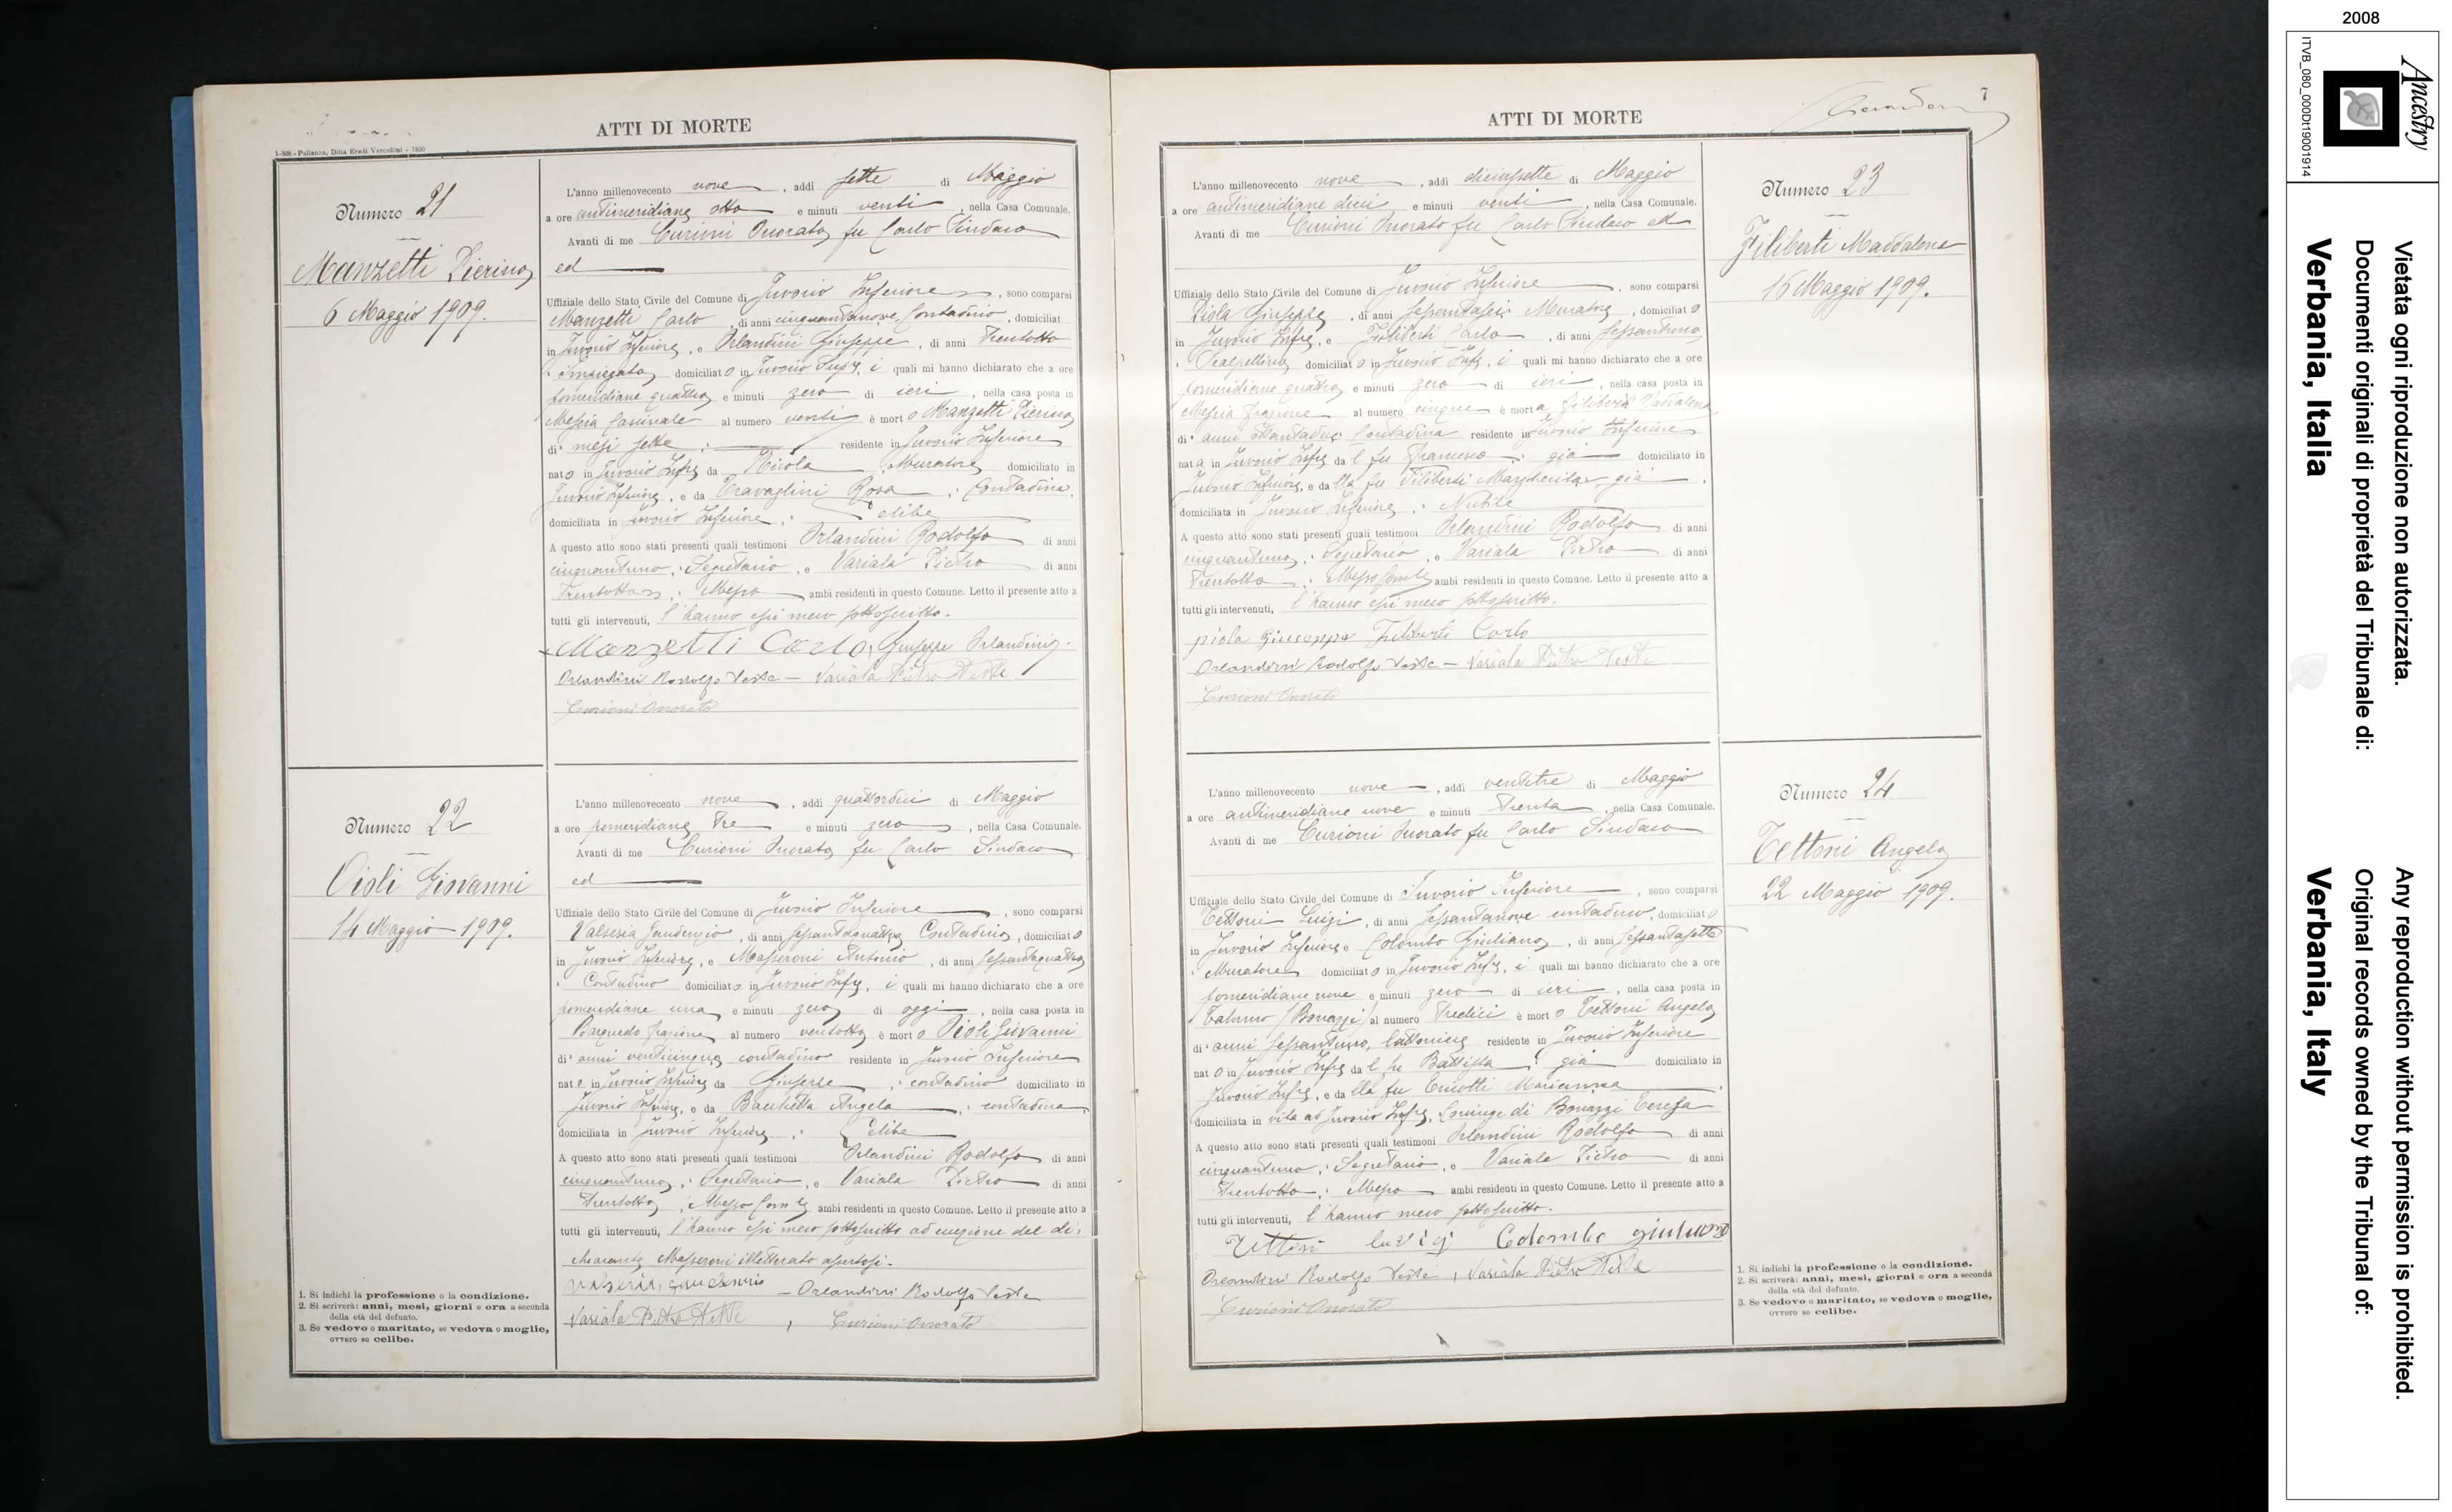 ATTI DI MORTE
1-308 - Pallanza, Ditta Eredi Vercellini - 1899
Numero 21
Manzetti Pierino
6 Maggio 1909.
L'anno millenovecento nove, addì sette di Maggio
a ore antimeridiane otto e minuti venti, nella Casa Comunale.
Avanti di me Curioni Onorato fu Carlo Sindaco
ed
Uffiziale dello Stato Civile del Comune di Invorio Inferiore, sono comparsi
Manzetti Carlo, di anni cinquantanove, Contadino, domiciliat
in Invorio Inferiore, e Orlandini Giuseppe, di anni trentotto
Impiegato, domiciliato in Invorio Supre, i quali mi hanno dichiarato che a ore
pomeridiane quattro e minuti zero di ieri, nella casa posta in
Mescia Cascinale al numero venti è morto Manzetti Pierino
di mesi sette residente in Invorio Inferiore
nato in Invorio Infre da Nicola, Muratore domiciliato in
Invorio Inferiore, e da Travaglini Rosa, Contadina,
domiciliata in Invorio Inferiore, Celibe
A questo atto sono stati presenti quali testimoni Orlandini Rodolfo di anni
cinquantuno, Segretario, e Variala Pietro di anni
trentotto, Messo ambi residenti in questo Comune. Letto il presente atto a
tutti gli intervenuti, l'hanno essi meco sottoscritto.
Manzetti Carlo, Giuseppe Orlandini
Orlandini Rodolfo Teste - Variala Pietro Teste
Curioni Onorato
Numero 22
Oioli Giovanni
14 Maggio 1909.
L'anno millenovecento nove, addì quattordici di Maggio
a ore pomeridiane tre e minuti zero, nella Casa Comunale.
Avanti di me Curioni Onorato fu Carlo Sindaco
ed
Uffiziale dello Stato Civile del Comune di Invorio Inferiore, sono comparsi
Valsesia Gaudenzio, di anni sessantaquattro Contadino, domiciliato
in Invorio Inferiore, e Masseroni Antonio, di anni sessantaquattro
Contadino domiciliato in Invorio Infre, i quali mi hanno dichiarato che a ore
pomeridiane una e minuti zero di oggi, nella casa posta in
Barquedo frazione al numero ventotto è morto Oioli Giovanni
di anni venticinque contadino residente in Invorio Inferiore
nato in Invorio Inferiore da Giuseppe, contadino domiciliato in
Invorio Inferiore, e da Bacchetta Angela, contadina,
domiciliata in Invorio Inferiore, Celibe
A questo atto sono stati presenti quali testimoni Orlandini Rodolfo di anni
cinquantuno, Segretario, e Variala Pietro di anni
trentotto, Messo Comle ambi residenti in questo Comune. Letto il presente atto a
tutti gli intervenuti, l'hanno essi meco sottoscritto ad eccezione del di:
chiarante Masseroni illetterato asseritosi.
Valsesia Gaudenzio - Orlandini Rodolfo Teste
Variala Pietro Teste, Curioni Onorato
1. Si indichi la professione o la condizione.
2. Si scriverà: anni, mesi, giorni e ora a seconda
della età del defunto.
3. Se vedovo o maritato, se vedova o moglie,
ovvero se celibe.
7
ATTI DI MORTE
L'anno millenovecento nove, addì diciassette di Maggio
a ore antimeridiane dieci e minuti venti, nella Casa Comunale.
Avanti di me Curioni Onorato fu Carlo Sindaco ed
Uffiziale dello Stato Civile del Comune di Invorio Inferiore, sono comparsi
Piola Giuseppe, di anni sessantasei Muratore, domiciliato
in Invorio Infre, e Filiberti Carlo, di anni sessantuno
Scalpellino domiciliato in Invorio Infre, i quali mi hanno dichiarato che a ore
pomeridiane quattro e minuti zero di ieri, nella casa posta in
Mescia frazione al numero cinque è morta Filiberti Maddalena
di anni ottantadue Contadina residente in Invorio Inferiore
nata in Invorio Infre dal fu Francesco già domiciliato in
Invorio Inferiore, e dalla fu Filiberti Margherita già
domiciliata in Invorio Inferiore, Nubile
A questo atto sono stati presenti quali testimoni Orlandini Rodolfo di anni
cinquantuno, Segretario, e Variala Pietro di anni
trentotto, Messo Comle ambi residenti in questo Comune. Letto il presente atto a
tutti gli intervenuti, l'hanno essi meco sottoscritto.
piola Giuseppe Filiberti Carlo
Orlandini Rodolfo Teste - Variala Pietro Teste
Curioni Onorato
Numero 23
Filiberti Maddalena
16 Maggio 1909.
L'anno millenovecento nove, addì ventitre di Maggio
a ore antimeridiane nove e minuti trenta, nella Casa Comunale.
Avanti di me Curioni Onorato fu Carlo Sindaco
Uffiziale dello Stato Civile del Comune di Invorio Inferiore, sono comparsi
Tettoni Luigi, di anni sessantanove contadino, domiciliato
in Invorio Inferiore e Colombo Giuliano, di anni sessantasette
Muratore domiciliato in Invorio Infre, i quali mi hanno dichiarato che a ore
pomeridiane nove e minuti zero di ieri, nella casa posta in
Talumo (Bonazzi) al numero tredici è morto Tettoni Angelo
di anni sessantuno, lattoniere residente in Invorio Inferiore
nato in Invorio Infre dal fu Battista già domiciliato in
Invorio Infre, e dalla fu Marianna,
domiciliata in vita ad Invorio Infre, Coniuge di Bonazzi Teresa
A questo atto sono stati presenti quali testimoni Orlandini Rodolfo di anni
cinquantuno, Segretario, e Variala Pietro di anni
trentotto, Messo ambi residenti in questo Comune. Letto il presente atto a
tutti gli intervenuti, l'hanno meco sottoscritto.
Tettoni luvigi Colombo giuliano
Orlandini Rodolfo Teste, Variala Pietro Teste
Curioni Onorato
Numero 24
Tettoni Angelo
22 Maggio 1909.
1. Si indichi la professione o la condizione.
2. Si scriverà: anni, mesi, giorni e ora a seconda
della età del defunto.
3. Se vedovo o maritato, se vedova o moglie,
ovvero se celibe.
2008
Ancestry
ITVB_080_000Dt19001914
Vietata ogni riproduzione non autorizzata.
Documenti originali di proprietà del Tribunale di:
Verbania, Italia
Any reproduction without permission is prohibited.
Original records owned by the Tribunal of:
Verbania, Italy